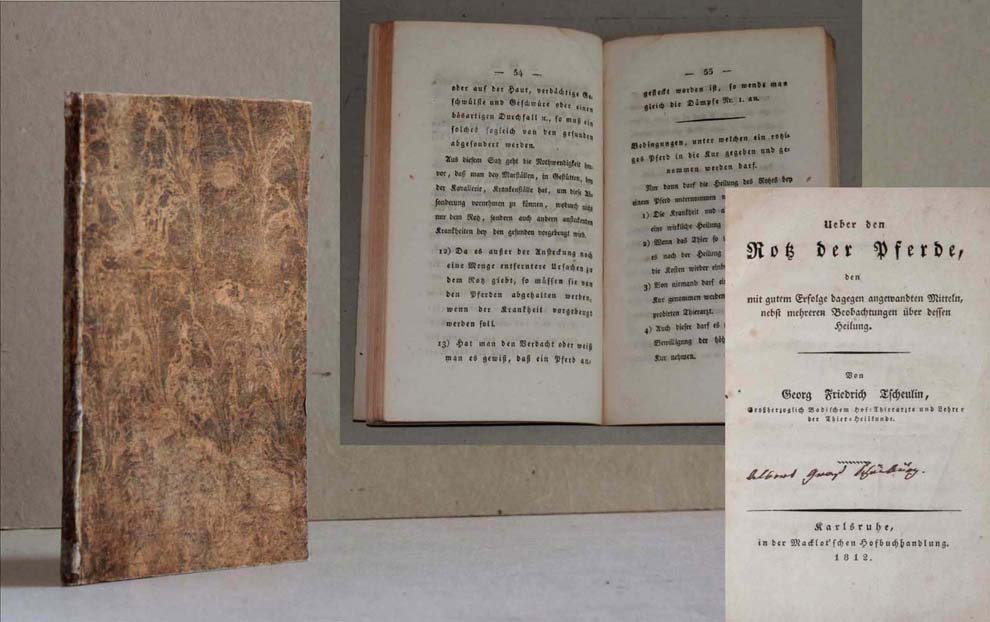 — 54 —
oder auf der Haut, verdächtige Ge-
schwülste und Geschwüre oder einen
bösartigen Durchfall ꝛc., so muß ein
solches sogleich von den gesunden
abgesondert werden.
Aus diesem Satz geht die Nothwendigkeit her-
vor, daß man bey Marställen, in Gestütten, bey
der Kavallerie, Krankenställe hat, um diese Ab-
sonderung vornehmen zu können, wodurch nicht
nur dem Rotz, sondern auch andern ansteckenden
Krankheiten bey den gesunden vorgebeugt wird.
12) Da es außer der Ansteckung noch
eine Menge entferntere Ursachen zu
dem Rotz giebt, so müssen sie von
den Pferden abgehalten werden,
wenn der Krankheit vorgebeugt
werden soll.
13) Hat man den Verdacht oder weiß
man es gewiß, daß ein Pferd an-
— 55 —
gesteckt worden ist, so wende man
gleich die Dämpfe Nr. 1. an.
Bedingungen, unter welchen ein rotzi-
ges Pferd in die Kur gegeben und ge-
nommen werden darf.
Nur dann darf die Heilung des Rotzes bey
einem Pferd unternommen
1) Die Krankheit und
eine wirkliche Heilung
2) Wenn das Thier so
es nach der Heilung
die Kosten wieder
3) Von niemand darf
Kur genommen werden
probirten Thierarzt.
4) Auch dieser darf es
Bewilligung der
Kur nehmen.
Ueber den
Rotz der Pferde,
den
mit gutem Erfolge dagegen angewandten Mitteln,
nebst mehreren Beobachtungen über dessen
Heilung.
Von
Georg Friedrich Tscheulin,
Großherzoglich Badischem Hof-Thierarzte und Lehrer
der Thier-Heilkunde.
Karlsruhe,
in der Macklot'schen Hofbuchhandlung.
1812.